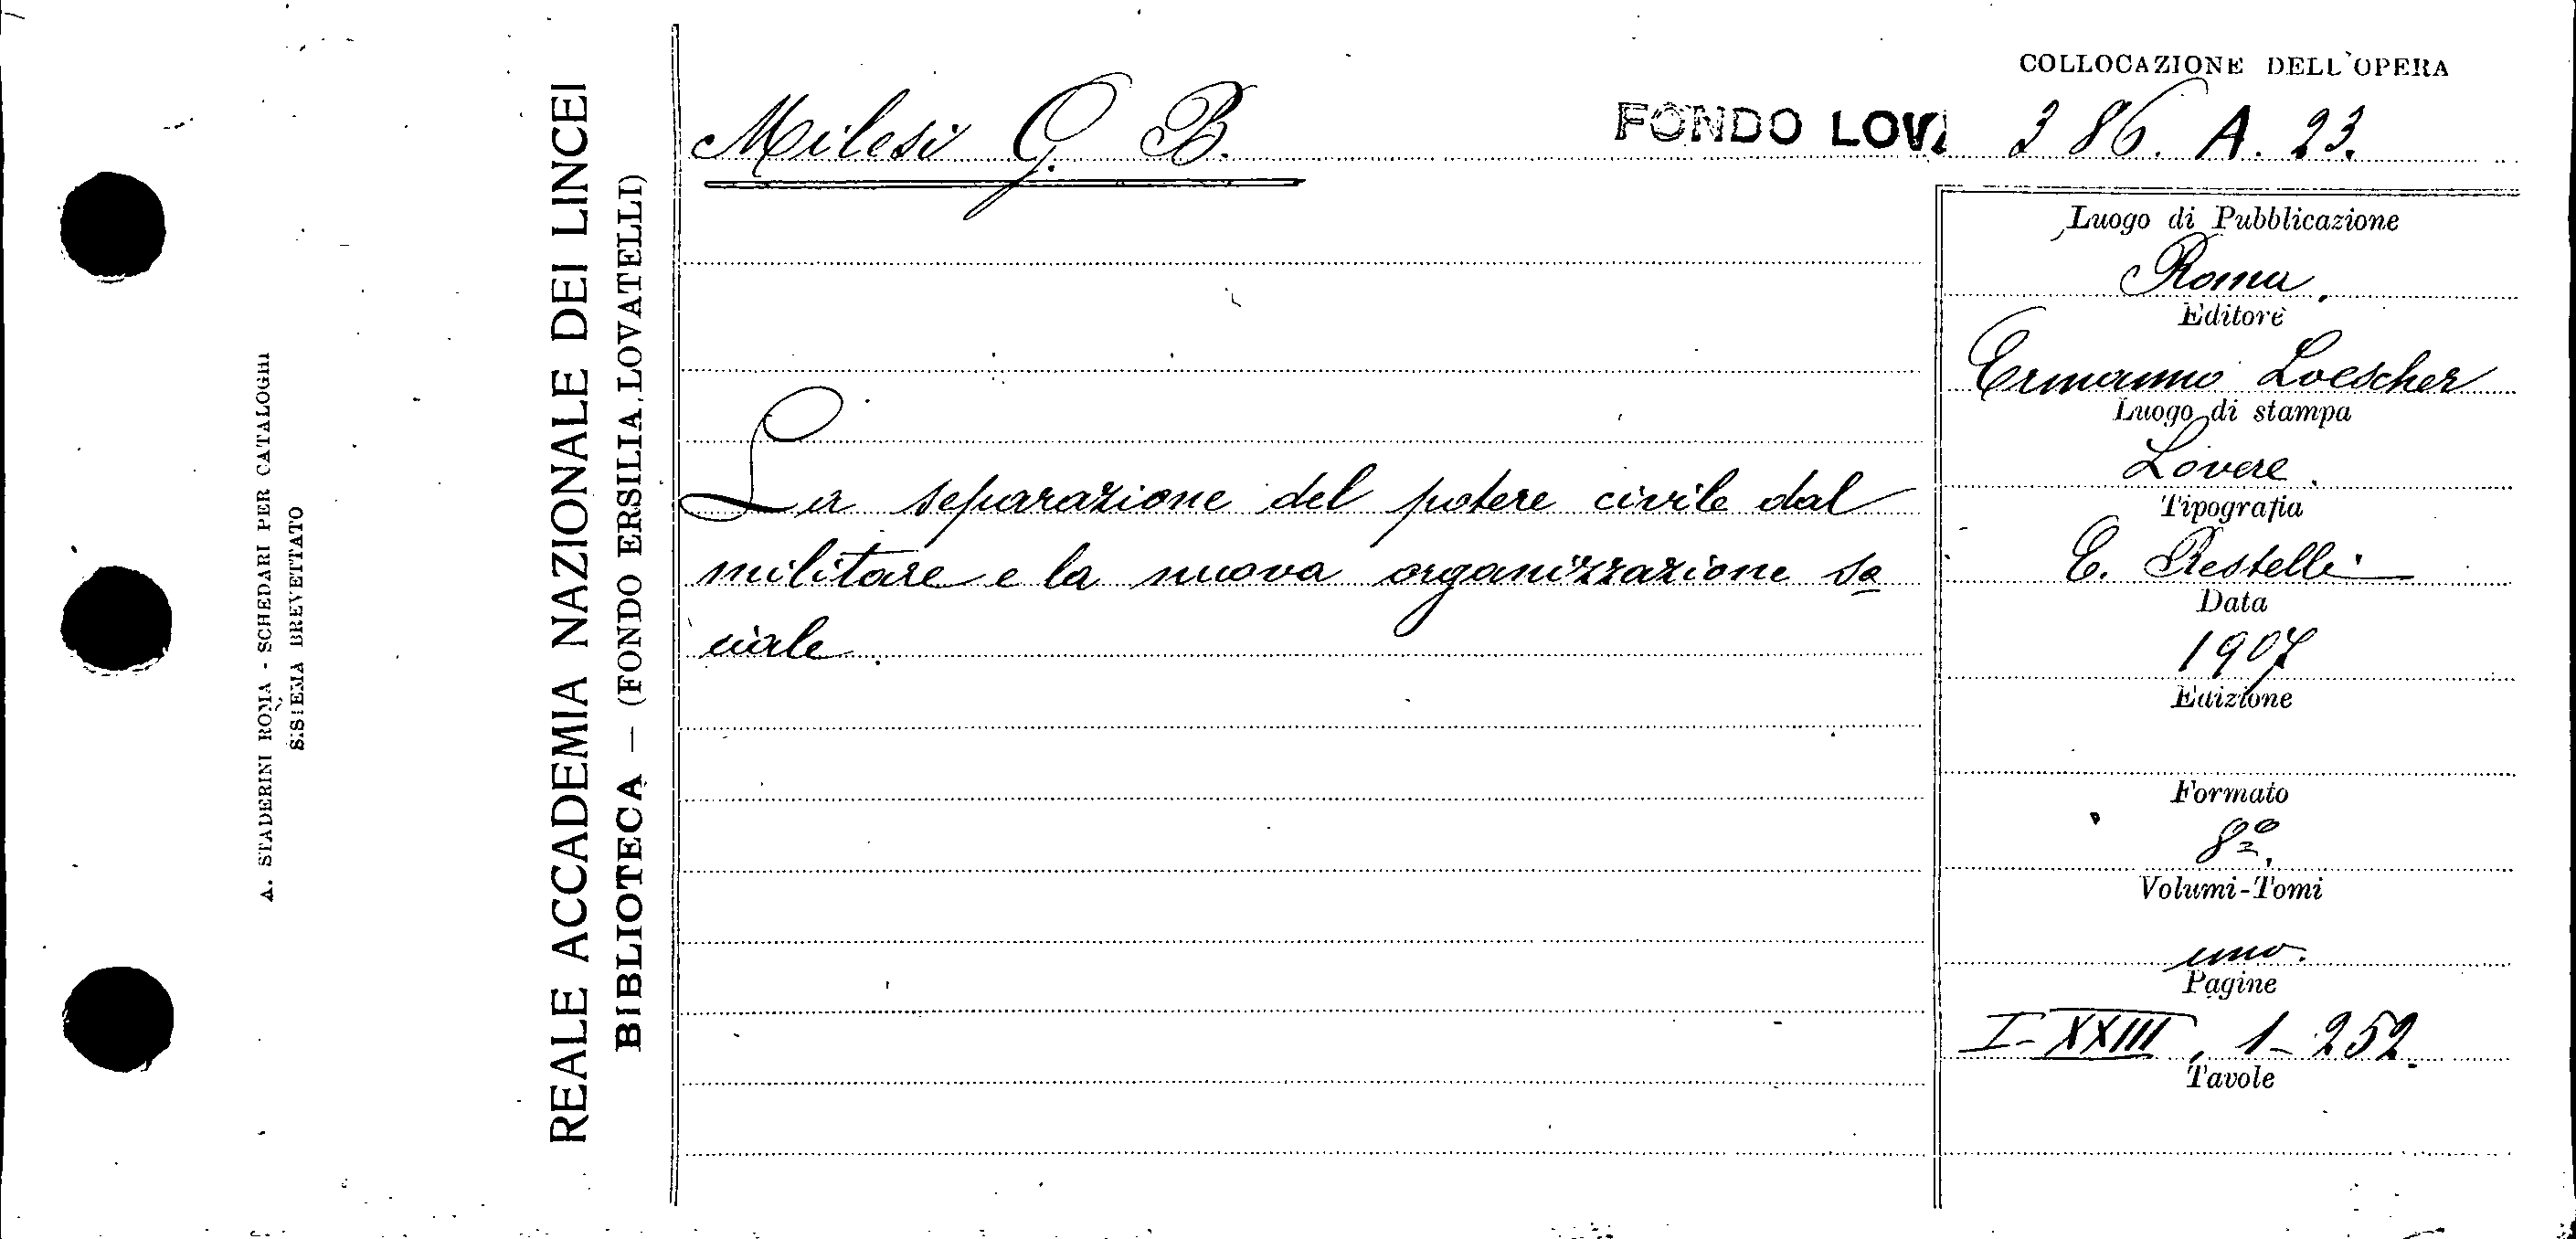 A. STADERINI ROMA - SCHEDARI PER CATALOGHI
SISTEMA BREVETTATO
REALE ACCADEMIA NAZIONALE DEI LINCEI
BIBLIOTECA — (FONDO ERSILIA LOVATELLI)
Milesi G. B.
FONDO LOV
COLLOCAZIONE DELL'OPERA
386. A. 23.
La separazione del potere civile dal
militare e la nuova organizzazione so
ciale.
Luogo di Pubblicazione
Roma.
Editore
Ermanno Loescher
Luogo di stampa
Lovere.
Tipografia
E. Restelli
Data
1907
Edizione
Formato
8º.
Volumi-Tomi
uno.
Pagine
I-XXIII, 1-252.
Tavole